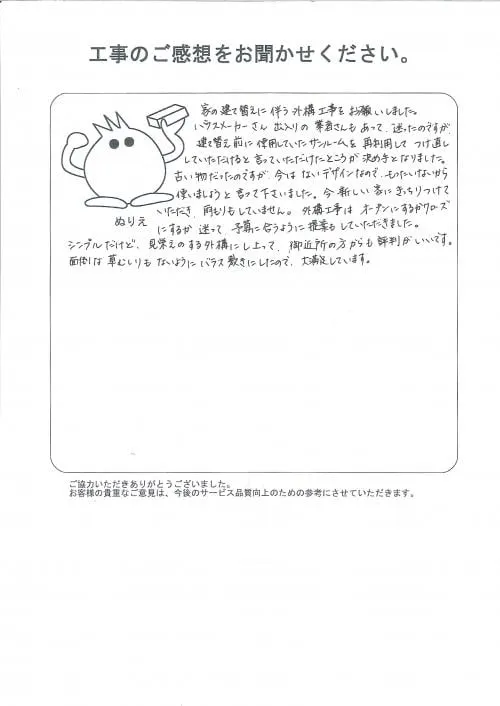 工事のご感想をお聞かせください。
家の建て替えに伴う外構工事をお願いしました。
ハウスメーカーさん出入りの業者さんもあって、迷ったのですが、
建て替え前に使用していたサンルームを再利用してつけ直し
していただけると言っていただけたところが決め手となりました。
古い物だったのですが、今はないデザインなので、もったいないから
使いましょうと言って下さいました。今新しい家にきっちりつけて
いただき、雨もりもしていません。外構工事はオープンにするかクローズ
にするか迷って、予算に合うように提案もしていただきました。
ぬりえ
シンプルだけど、見栄えのする外構に仕上って、御近所の方からも評判がいいです。
面倒な草むしりもないようにバラス敷きにしたので、大満足しています。
ご協力いただきありがとうございました。
お客様の貴重なご意見は、今後のサービス品質向上のための参考にさせていただきます。